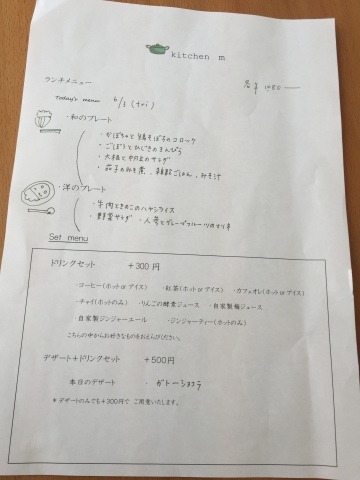 kitchen m
各￥1080ー
ランチメニュー
Today's menu 6/3 (fri)
・和のプレート
・かぼちゃと鶏そぼろのコロッケ
・ごぼうとひじきのきんぴら
・大根と水菜のサラダ
・茄子のみそ煮、雑穀ごはん、みそ汁
・洋のプレート
・牛肉ときのこのハヤシライス
・野菜サラダ ・人参とグレープフルーツのマリネ
Set menu
ドリンクセット +300円
・コーヒー(ホット or アイス) ・紅茶(ホット or アイス) ・カフェオレ(ホット or アイス)
・チャイ(ホットのみ) ・りんごの酵素ジュース ・自家製梅ジュース
・自家製ジンジャーエール ・ジンジャーティー(ホットのみ)
こちらの中からお好きなものをお選びください。
デザート+ドリンクセット +500円
本日のデザート ・ ガトーショコラ
＊デザートのみでも+300円で ご用意いたします。